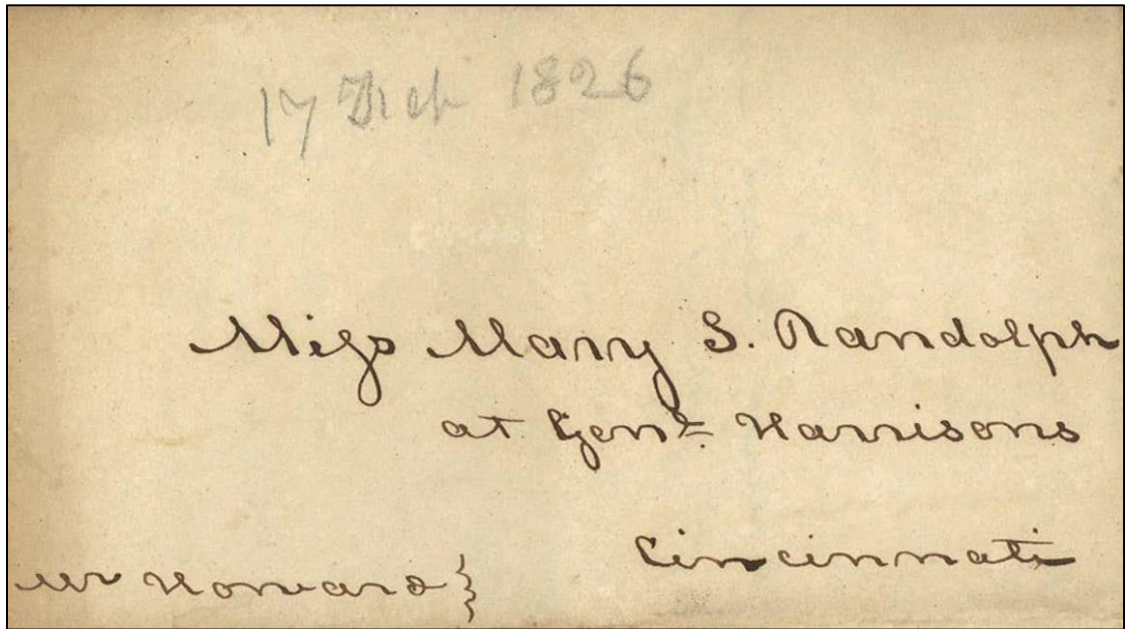 17 Feb 1826
Miss Mary S. Randolph
at Genl Harrisons
Cincinnati
Mr Howard }